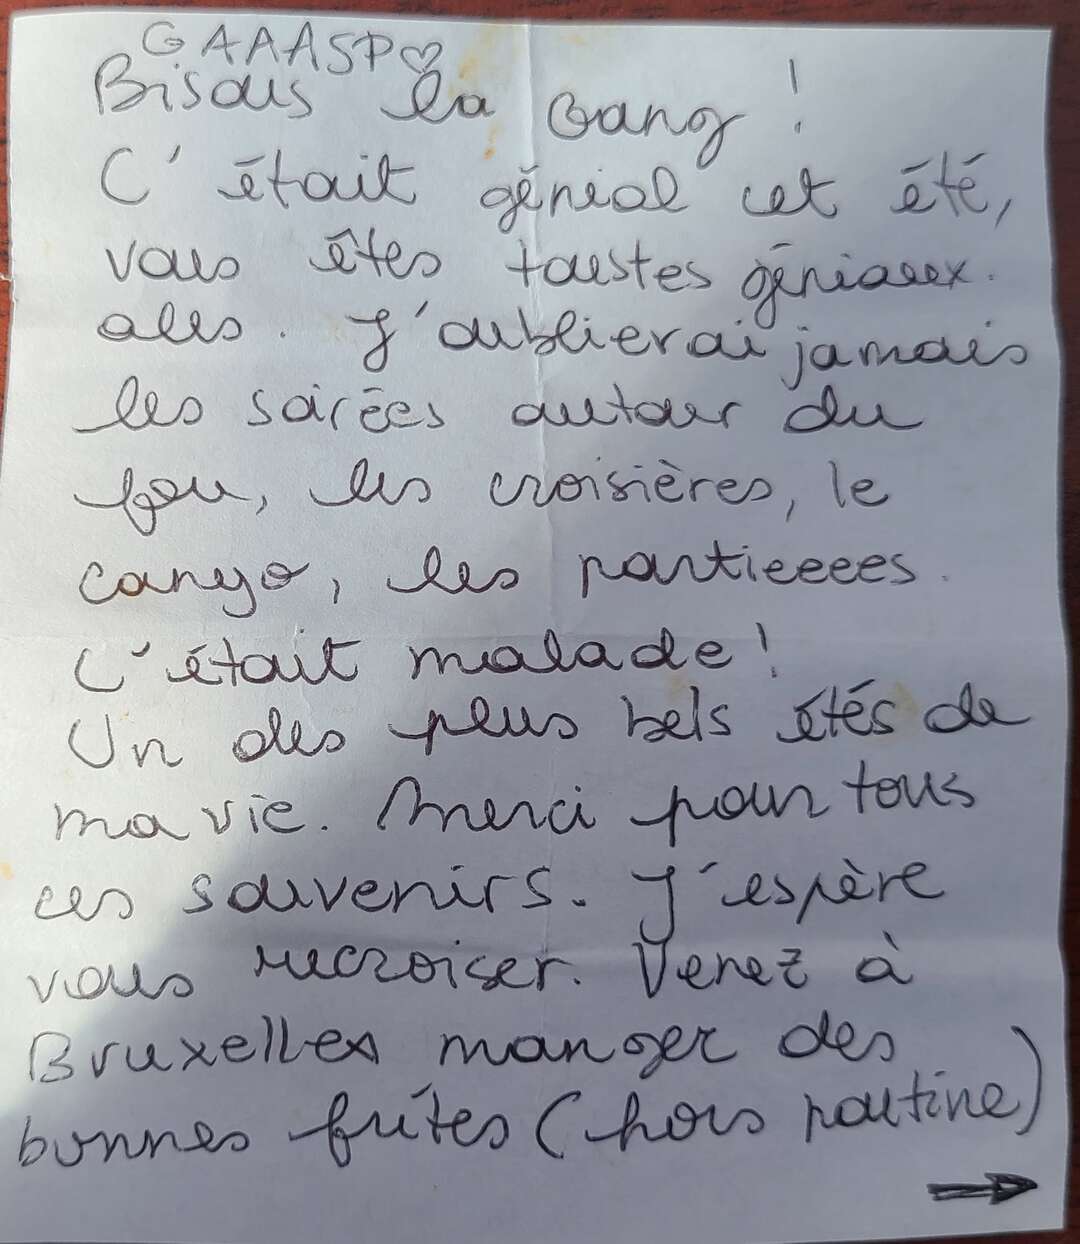 GAAASP♡
Bisous la Gang !
C'était génial cet été,
vous êtes toustes géniaux.
ales. J'oublierai jamais
les soirées autour du
feu, les croisières, le
canyo, les partieeees.
C'était malade !
Un des plus bels étés de
ma vie. Merci pour tous
ces souvenirs. J'espère
vous recroiser. Venez à
Bruxelles manger des
bonnes frites (hors poutine)
→